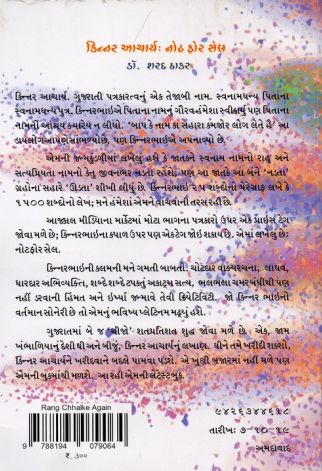 કિન્નર આચાર્ય: નોટ ફોર સેલ
ડૉ. શરદ ઠાકર
કિન્નર આચાર્ય. ગુજરાતી પત્રકારત્વનું એક તેજાબી નામ. સ્વનામધન્ય પિતાના
સ્વનામધન્ય પુત્ર. કિન્નરભાઇએ પિતાના નામનું ગૌરવ હંમેશા સ્વીકાર્યું પણ પિતાના
નામનો આશ્રય ક્યારેય ન લીધો. 'બાપ કે નામ કા સહારા કમજોર લોગ લેતે હૈ' આ
ડાયલોગ આપણે સાંભળ્યો છે, પણ કિન્નરભાઇએ અપનાવ્યો છે.
એમની જન્મકુંડળીમાં લખેલું હશે કે જાતકને સ્વનામ નામનો રાહુ અને
સત્યપ્રિયતા નામનો કેતુ જીવનભર નડતા રહેશે. પણ આ જાતકે આ બંને 'નડતા'
ગ્રહોના સહારે 'ઊડતા' શીખી લીધું છે. કિન્નરભાઇ ૨૫ શબ્દોનો પેરેગ્રાફ લખે કે
૧૫૦૦ શબ્દોનો લેખ; મને હંમેશાં એમને વાંચવાની તરસ રહી છે.
આજકાલ મીડિયાના માર્કેટમાં મોટા ભાગના પત્રકારો ઉપર એક પ્રાઇસ ટેગ
જોવા મળે છે; કિન્નરભાઇના કપાળ ઉપર પણ એક ટેગ જોઇ શકાય છે. એમાં લખેલું છે:
નોટ ફોર સેલ.
કિન્નરભાઇની કલમની મને ગમતી બાબતો: ચોટદાર વાક્યરચના, લાઘવ,
ધારદાર અભિવ્યક્તિ, શબ્દે શબ્દે ટપકતું અકાટ્ય સત્ય, ભલભલા ચમરબંધીથી પણ
નહીં ડરવાની હિંમત અને ઇર્ષ્યા જન્માવે તેવી ક્રિયેટિવિટી. જો કિન્નર ભાઇનો
વર્તમાન સોનેરી છે તો એમનું ભવિષ્ય પ્લેટિનમ મઢ્યું હશે.
ગુજરાતમાં બે જ 'ચીજો' શતપ્રતિશત શુદ્ધ જોવા મળે છે. એક, જામ
ખંભાળિયાનું દેશી ઘી અને બીજું, કિન્નર આચાર્યનું લખાણ. ઘીને તમે ખરીદી શકશો,
કિન્નર આચાર્યને ખરીદવાને બદલે પામવા પડશે. એ ખુલ્લી બજારમાં નહીં મળે પણ
એમની બુકમાંથી મળશે. આ રહી એમની લેટેસ્ટ બુક.
Rang Chhalke Again
9 788194 079064
રૂ. ૩૦૦
૯૪૨૬૩૪૪૬૧૮
તારીખ: ૭-૧૦-૧૯
અમદાવાદ